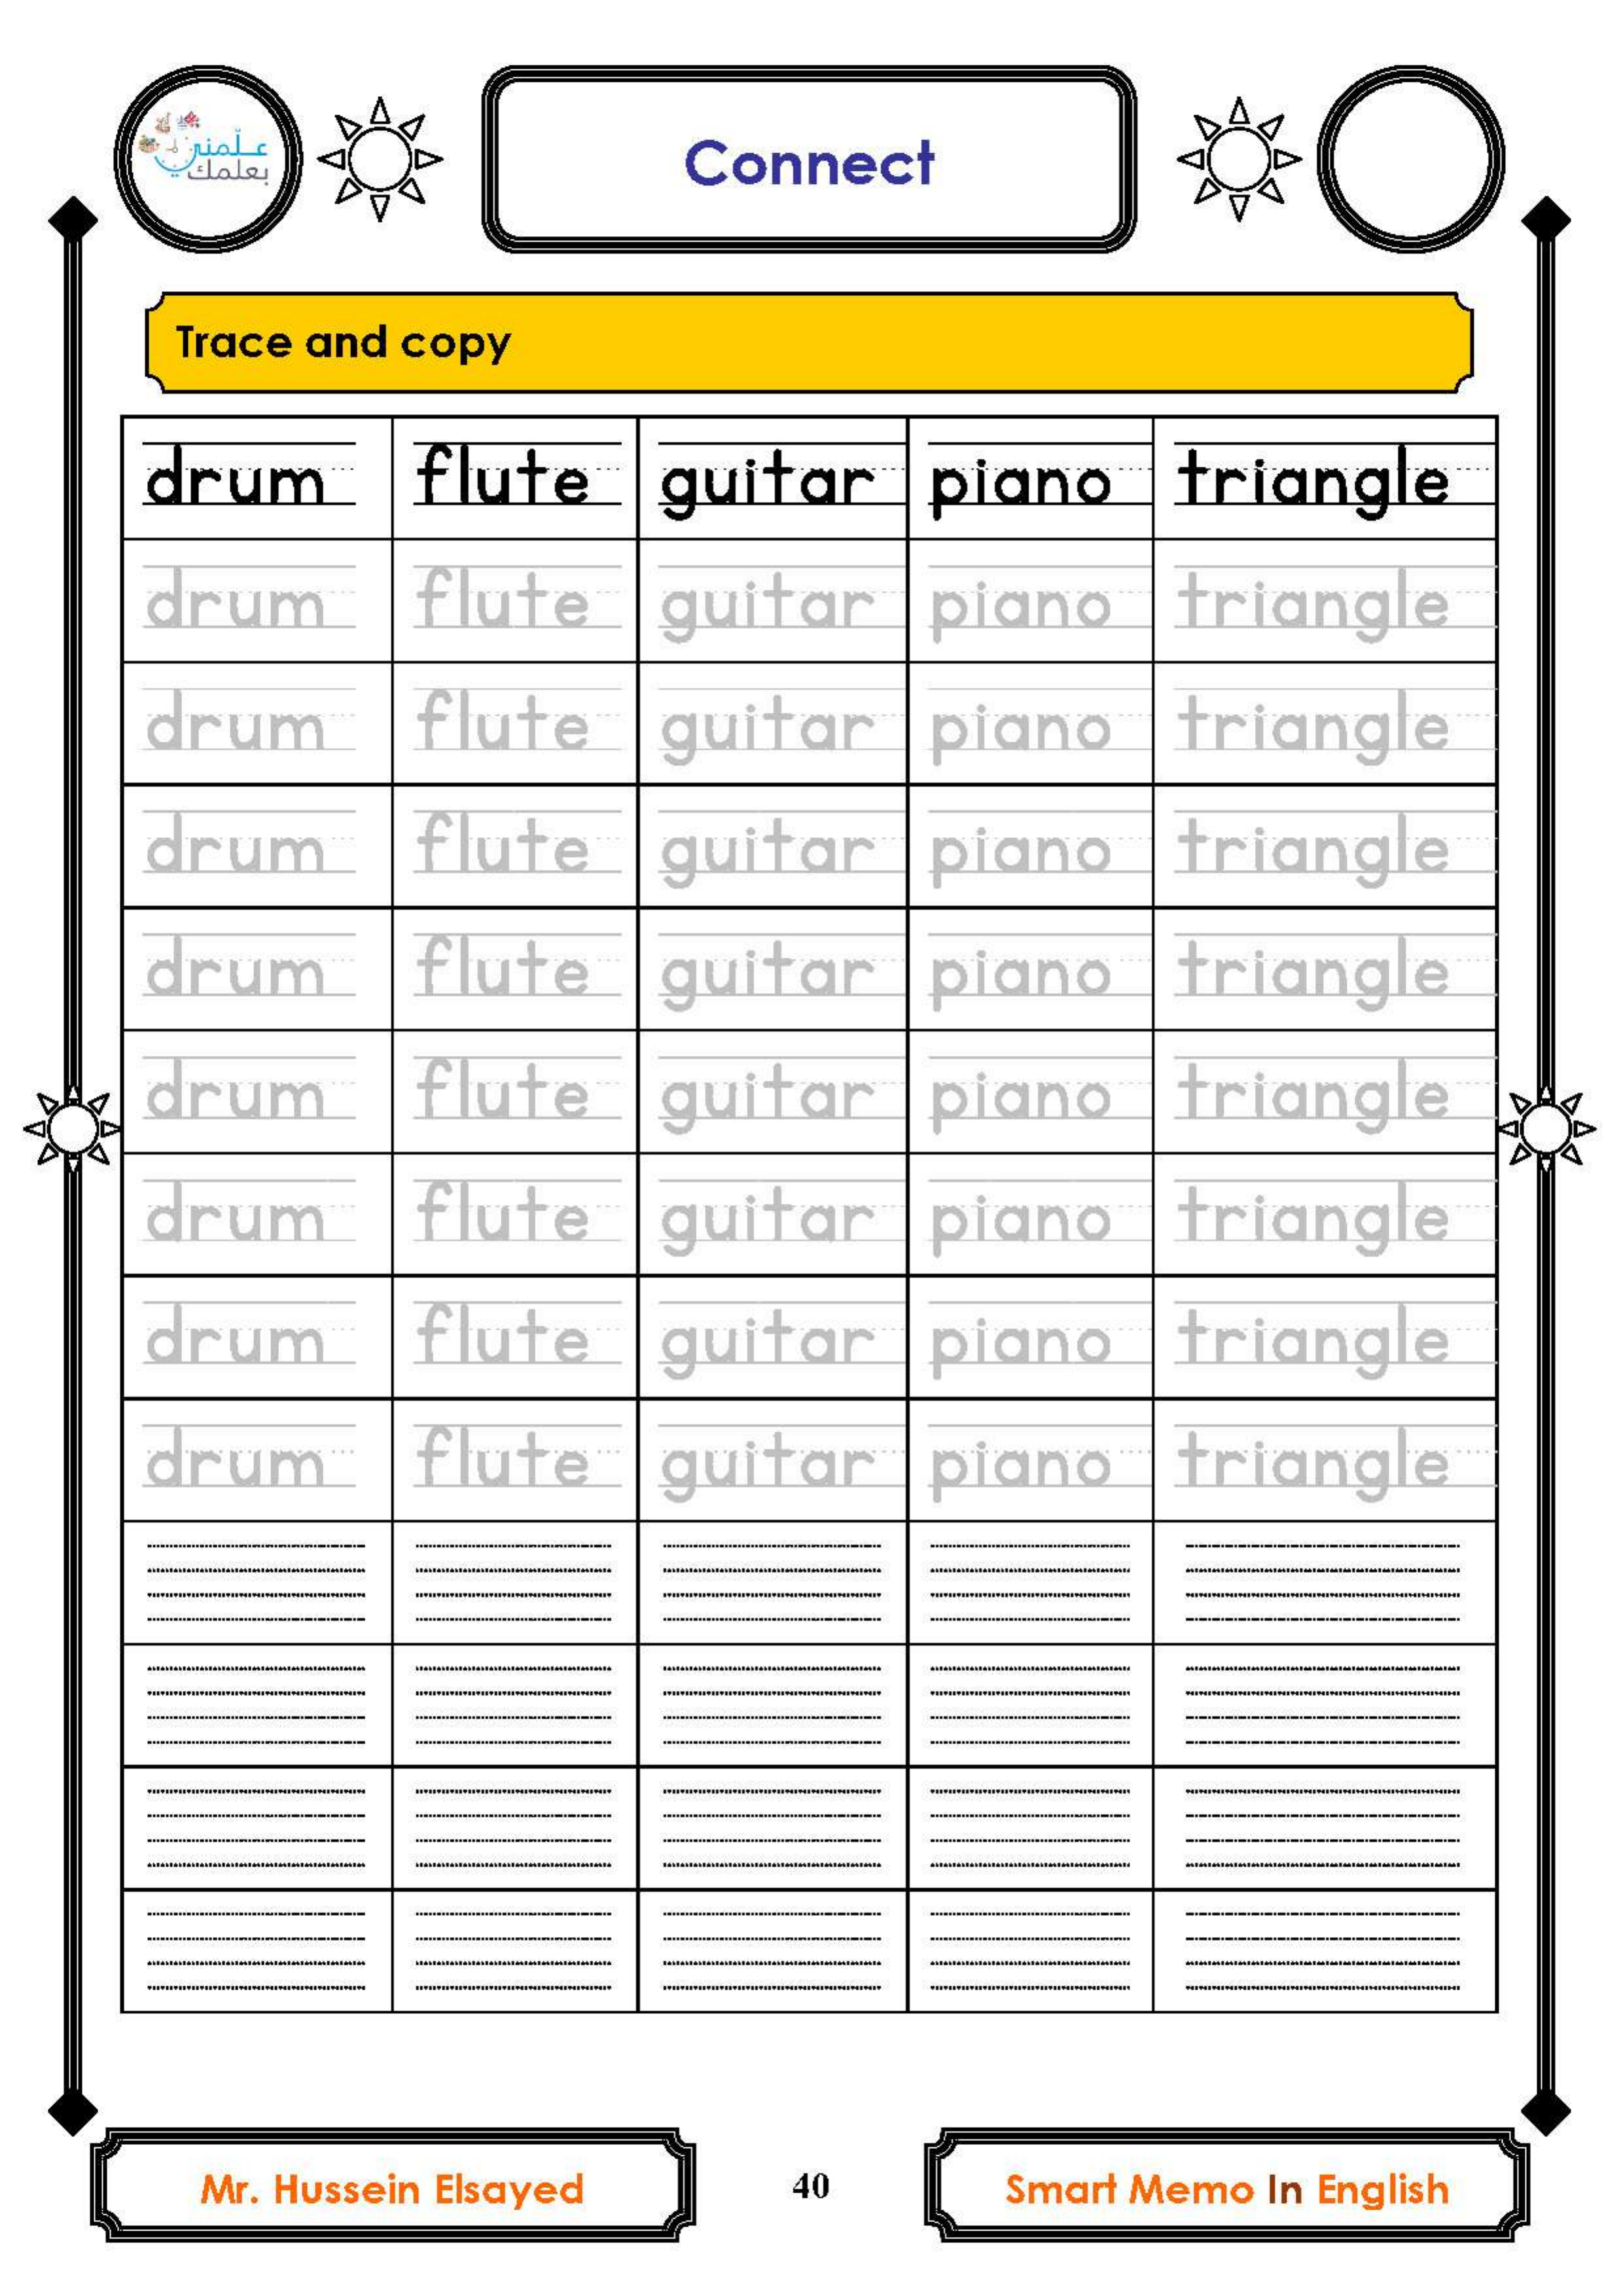 علّمني
بعلمك
Connect
Trace and copy
drum flute guitar piano triangle
drum flute guitar piano triangle
drum flute guitar piano triangle
drum flute guitar piano triangle
drum flute guitar piano triangle
drum flute guitar piano triangle
drum flute guitar piano triangle
drum flute guitar piano triangle
drum flute guitar piano triangle
Mr. Hussein Elsayed 40 Smart Memo In English